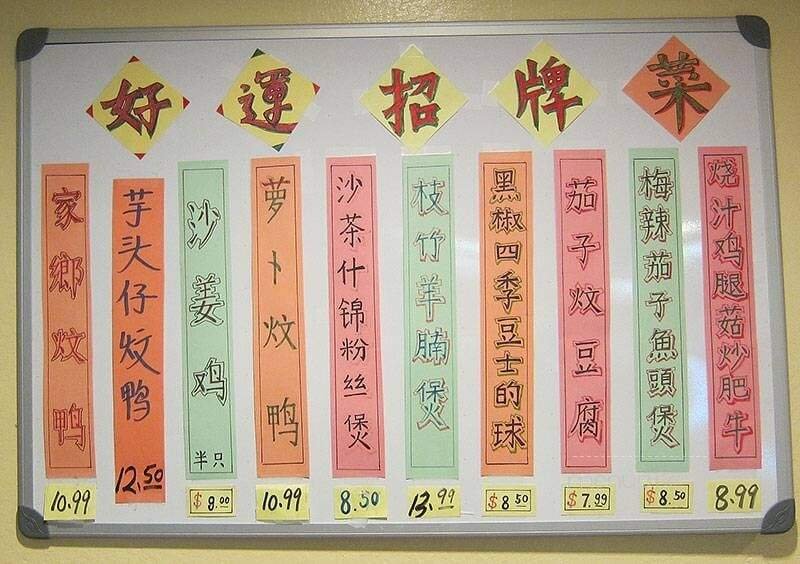 好運招牌菜
家鄉炆鸭
10.99
芋头仔炆鸭
12.50
沙姜鸡
半只
$8.00
萝卜炆鸭
10.99
沙茶什锦粉丝煲
8.50
枝竹羊腩煲
13.99
黑椒四季豆士的球
$8.50
茄子炆豆腐
$7.99
梅辣茄子魚頭煲
$8.50
烧汁鸡腿菇炒肥牛
8.99